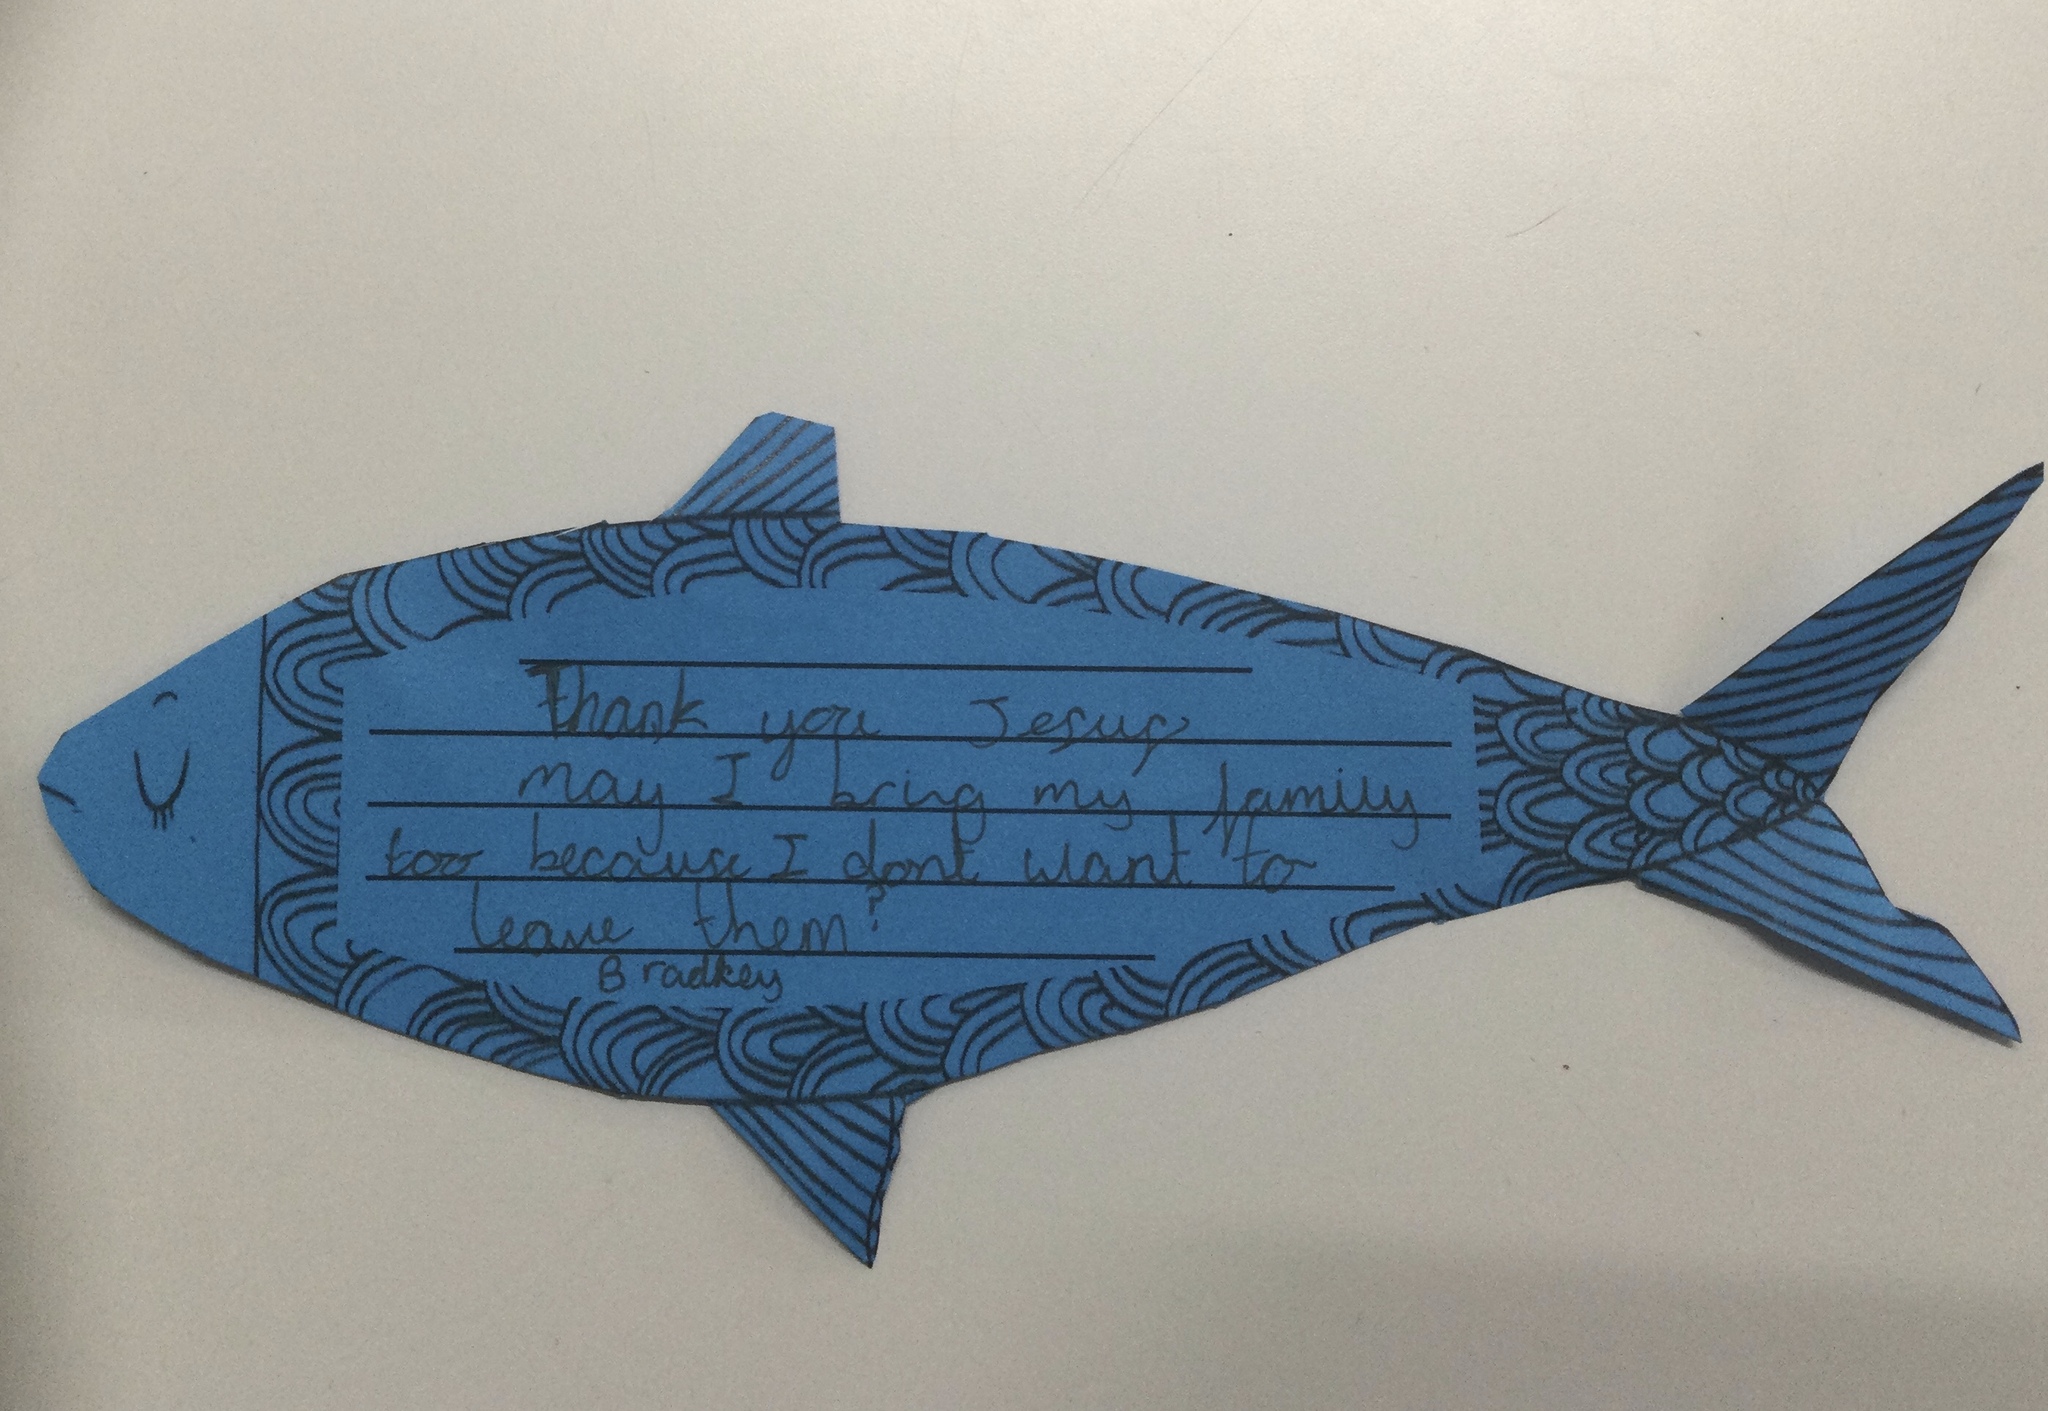 Thank you Jesus
may I bring my family
too because I dont want to
leave them?
Bradley